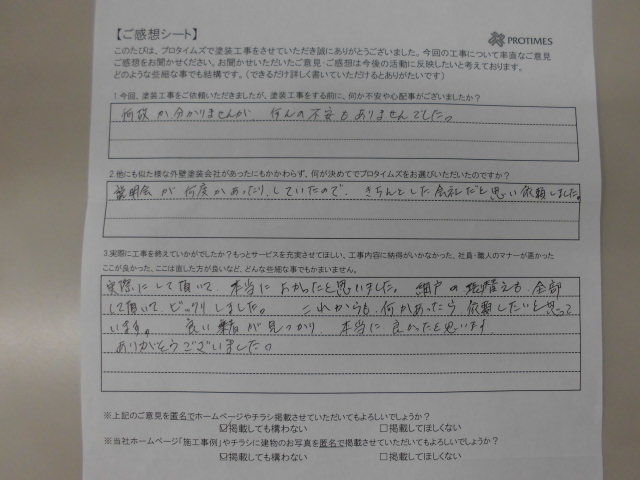 【ご感想シート】
PROTIMES
このたびは、プロタイムズで塗装工事をさせていただき誠にありがとうございました。今回の工事について率直なご意見
ご感想をお聞かせください。お聞かせいただいたご意見・ご感想は今後の活動に反映したいと考えております。
どのような些細な事でも結構です。（できるだけ詳しく書いていただけるとありがたいです）
1.今回、塗装工事をご依頼いただきましたが、塗装工事をする前に、何か不安や心配事がございましたか？
何故か分かりませんが 何んの不安もありませんでした。
2.他にも似た様な外壁塗装会社があったにもかかわらず、何が決めてでプロタイムズをお選びいただいたのですか？
説明会が何度かあったり、していたので、きちんとした会社だと思い依頼しました。
3.実際に工事を終えていかがでしたか？もっとサービスを充実させてほしい、工事内容に納得がいかなかった、社員・職人のマナーが悪かった
ここが良かった、ここは直した方が良いなど、どんな些細な事でもかまいません。
実際にして頂いて 本当によかったと思いました。網戸の張替えも、全部
して頂いて、ビックリしました。これからも、何かあったら依頼したいと思って
います。良い業者が見つかり 本当に良かったと思います
ありがとうございました。
※上記のご意見を匿名でホームページやチラシ掲載させていただいてもよろしいでしょうか？
☑掲載しても構わない □掲載してほしくない
※当社ホームページ「施工事例」やチラシに建物のお写真を匿名で掲載させていただいてもよろしいでしょうか？
☑掲載しても構わない □掲載してほしくない